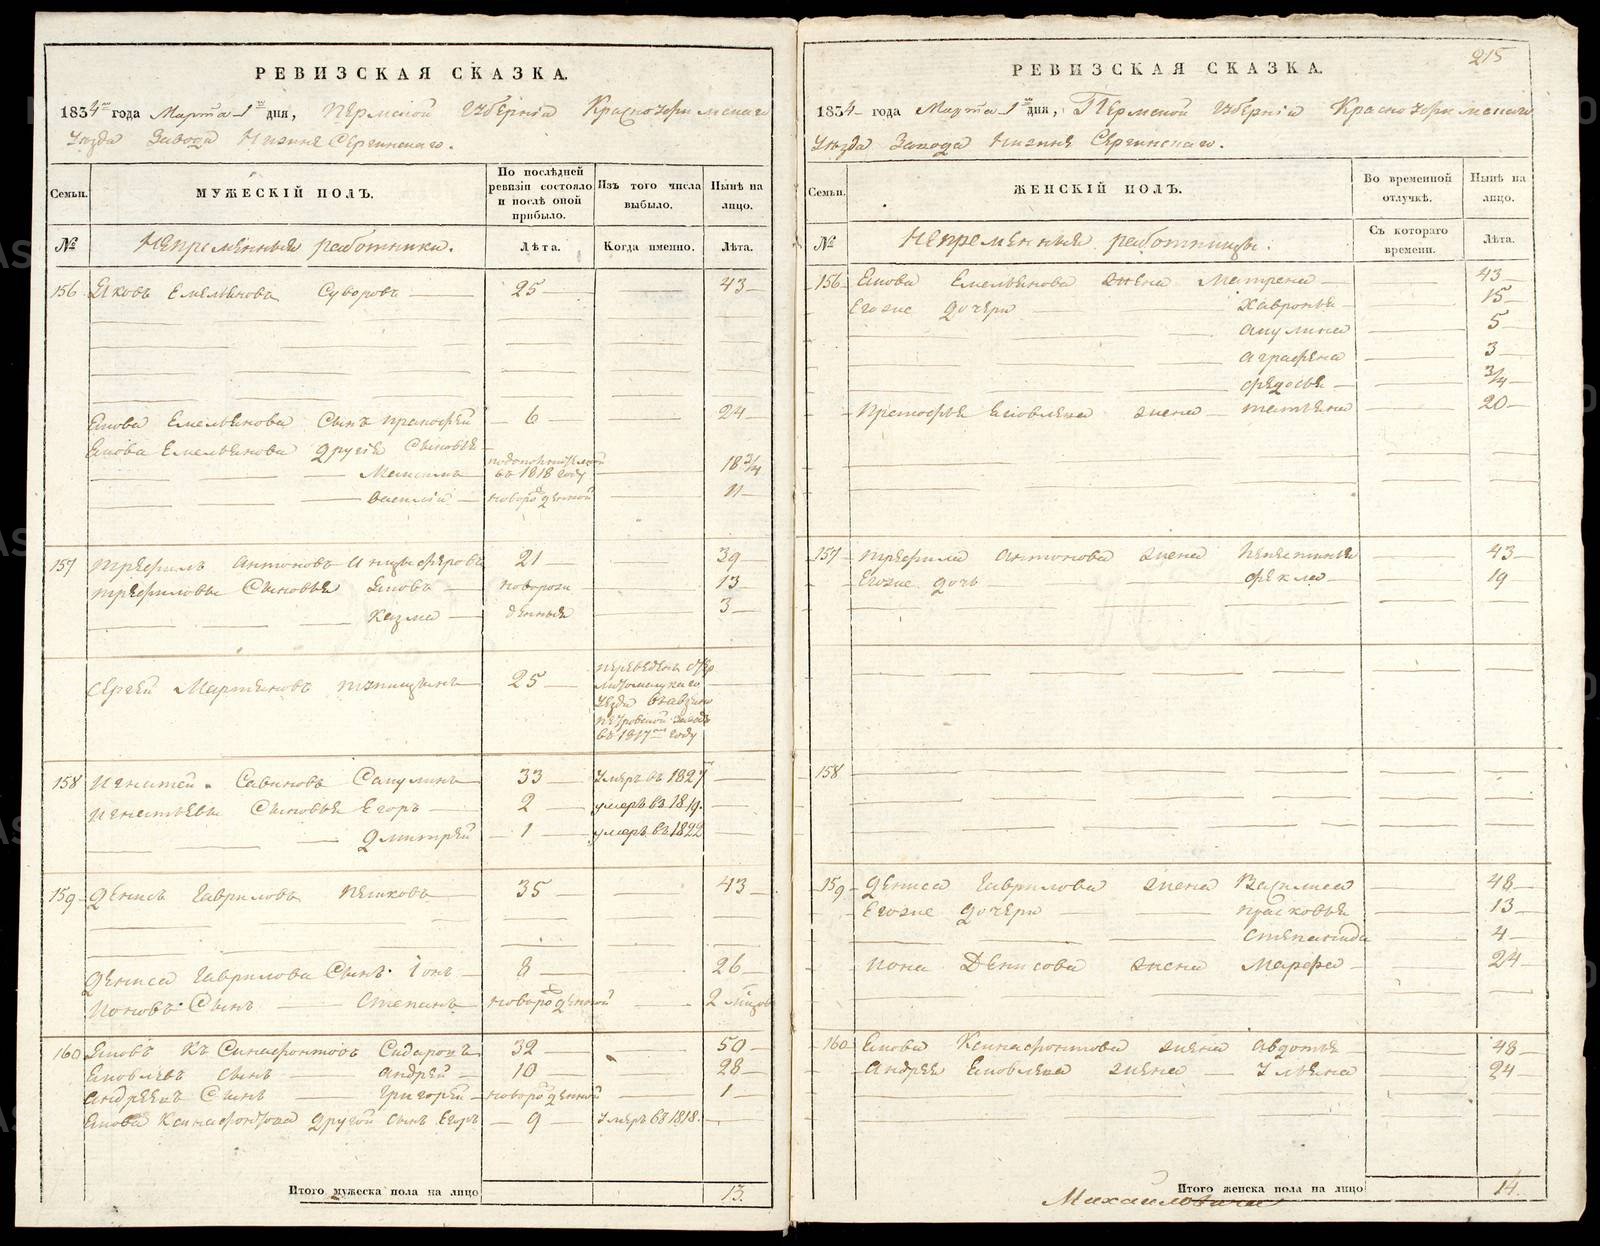 РЕВИЗСКАЯ СКАЗКА.
1834го года Марта 1го дня, Пермской Губернiи Красноуфимскаго
Уезда Завода Нижне Сергинскаго.
Семьи.
МУЖЕСКIЙ ПОЛЪ.
По послѣдней ревизiи состояло и послѣ оной прибыло.
Изъ того числа выбыло.
Нынѣ на лицо.
№
Непременныя работники.
Лѣта.
Когда именно.
Лѣта.
156 Яковъ Емельяновъ Суворовъ 25 43
Якова Емельянова Сынъ Пракофей 6 24
Якова Емельянова другiе Сыновья
Максимъ въ 1818 году 18 3/4
Василiй новорожденной 11
157 Трефилъ Антоновъ Анцыферовъ 21 39
Трефиловы Сыновья Яковъ новорож 13
Казма денныя 3
Сергей Мартеновъ 25 переведенъ
уезда
заводъ
въ 1817мъ году
158 Игнатей Савиновъ Сапулинъ 33 умеръ въ 1827
Игнатьевы Сыновья Егоръ 2 умеръ въ 1819.
Дмитрей 1 умеръ въ 1822
159 Денисъ Гавриловъ Пешковъ 35 43
Дениса Гаврилова Сынъ Iонъ 8 26
Ионовъ Сынъ Степанъ новорожденной 2 месецов
160 Яковъ Ксинафонтовъ Сидаровъ 32 50
Яковлевъ сынъ Андрей 10 28
Андреевъ Сынъ Григорей новорожденной 1
Якова Ксинафонтова другой сынъ Егоръ 9 умеръ въ 1818.
Итого мужеска пола на лицо 13.
215
РЕВИЗСКАЯ СКАЗКА.
1834 года Марта 1го дня, Пермской Губернiи Красноуфимскаго
Уезда Завода Нижне Сергинскаго.
Семьи.
ЖЕНСКIЙ ПОЛЪ.
Во временной отлучкѣ.
Нынѣ на лицо.
№
Непременныя работницы.
Съ котораго времени.
Лѣта.
156 Якова Емельянова жена Матрена 43
Егоже дочери Хавронья 15
Акулина 5
Аграфена 3
Федосья 3/4
Пракофья Яковлева жена Татьяна 20
157 Трефила Антонова жена 43
Егоже дочь Фекла 19
158
159 Дениса Гаврилова жена Василиса 48
Егоже дочери Прасковья 13
Степанида 4
Иона Денисова жена Марфа 24
160 Якова Ксинафонтова жена Авдотья 48
Андрея Яковлева жена Ульяна 24
Итого женска пола на лицо 14.